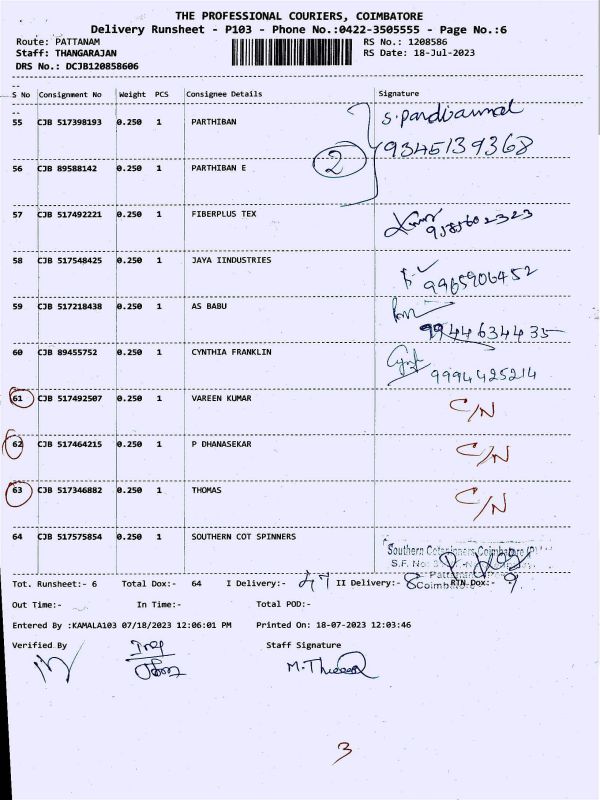 THE PROFESSIONAL COURIERS, COIMBATORE
Delivery Runsheet - P103 - Phone No.:0422-3505555 - Page No.:6
Route: PATTANAM RS No.: 1208586
Staff: THANGARAJAN RS Date: 18-Jul-2023
DRS No.: DCJB120858606
--
S No Consignment No Weight PCS Consignee Details Signature
--
55 CJB 517398193 0.250 1 PARTHIBAN S. Pandiammal
9345139368
2
56 CJB 89588142 0.250 1 PARTHIBAN E
57 CJB 517492221 0.250 1 FIBERPLUS TEX
58 CJB 517548425 0.250 1 JAYA IINDUSTRIES
9965906452
59 CJB 517218438 0.250 1 AS BABU
9944634435
60 CJB 89455752 0.250 1 CYNTHIA FRANKLIN
9994425214
61 CJB 517492507 0.250 1 VAREEN KUMAR C/N
62 CJB 517464215 0.250 1 P DHANASEKAR C/N
63 CJB 517346882 0.250 1 THOMAS C/N
64 CJB 517575854 0.250 1 SOUTHERN COT SPINNERS
Southern Cotspinners Coimbatore (P)
S.F. No:
Tot. Runsheet:- 6 Total Dox:- 64 I Delivery:- 47 II Delivery:- 8 RTN Dox:- 9
Out Time:- In Time:- Total POD:-
Entered By :KAMALA103 07/18/2023 12:06:01 PM Printed On: 18-07-2023 12:03:46
Verified By Staff Signature
3